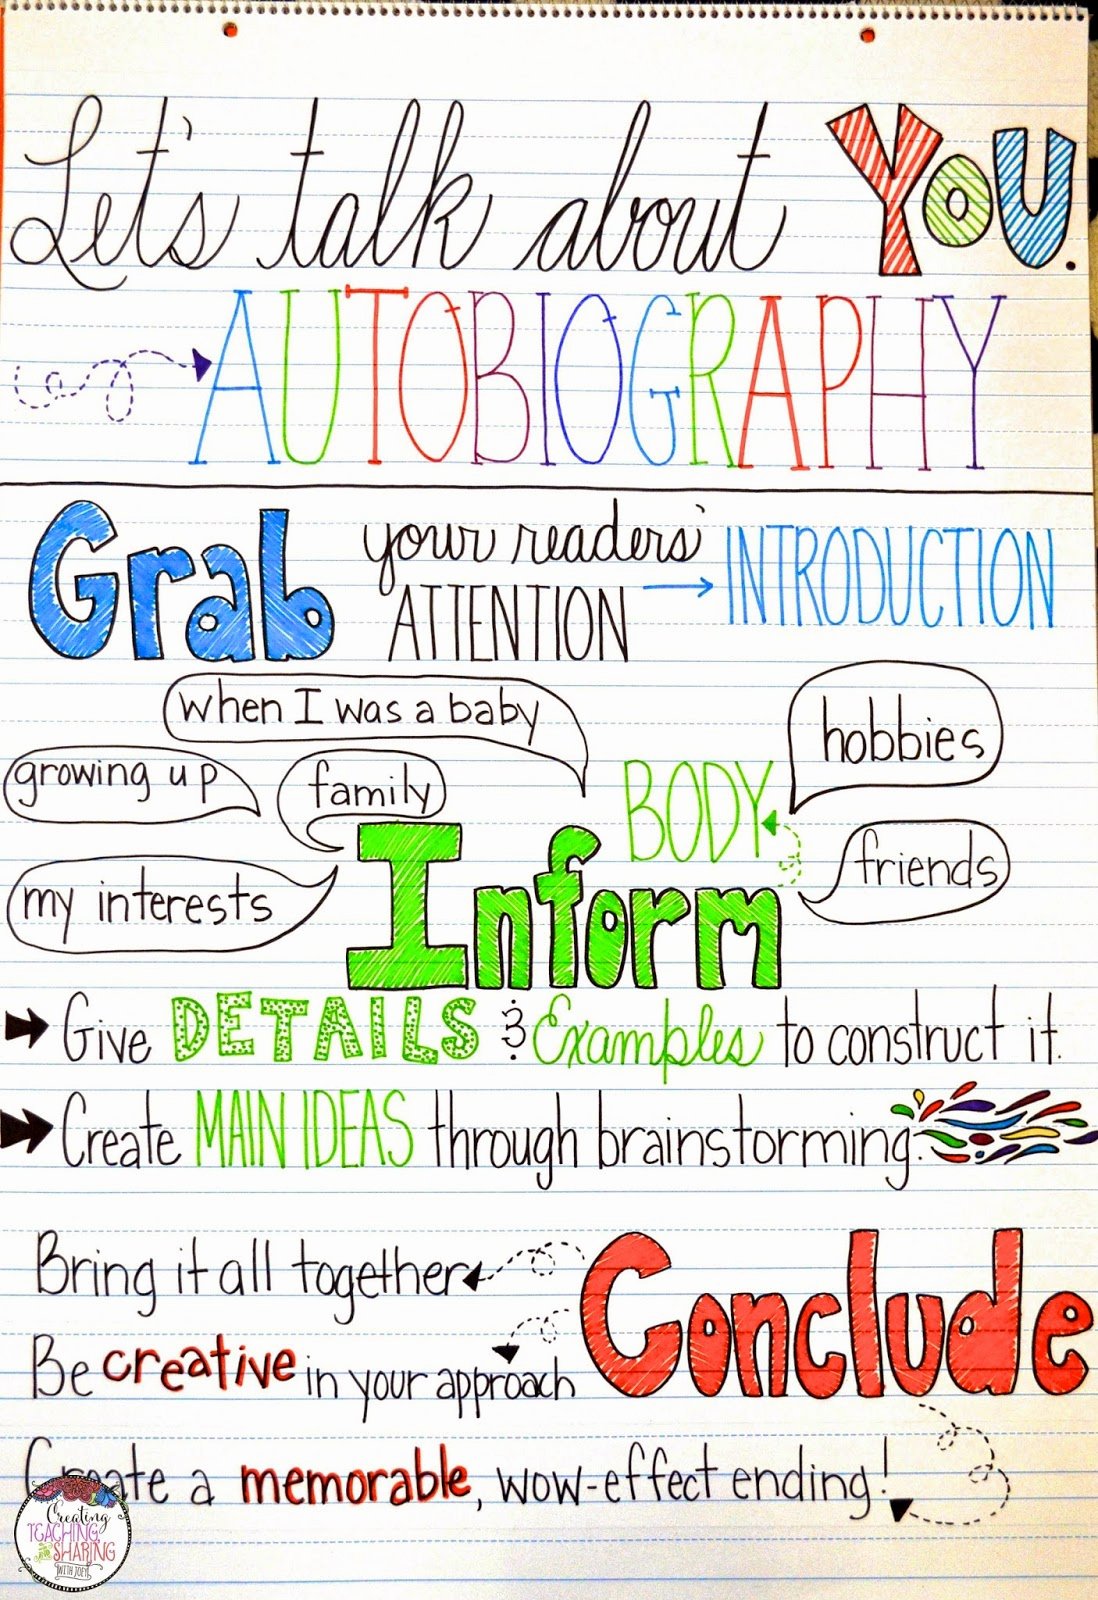 Let's talk about YOU.
AUTOBIOGRAPHY
Grab your readers' ATTENTION → INTRODUCTION
when I was a baby
hobbies
growing up
family
BODY
friends
my interests
Inform
Give DETAILS & Examples to construct it.
Create MAIN IDEAS through brainstorming.
Bring it all together
Conclude
Be creative in your approach
Create a memorable, wow-effect ending!
Creating
TEACHING
and
SHARING
WITH JOEY